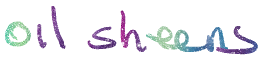 oil sheens